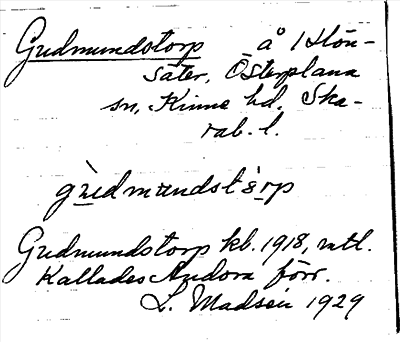 Gudmundstorp å 1 Hön-
säter, Österplana
sn, Kinne hd. Ska-
rab. l.
gùdmundstå̀rp
Gudmundstorp kb. 1918, mtl.
Kallades Andora förr.
L. Madsén 1929